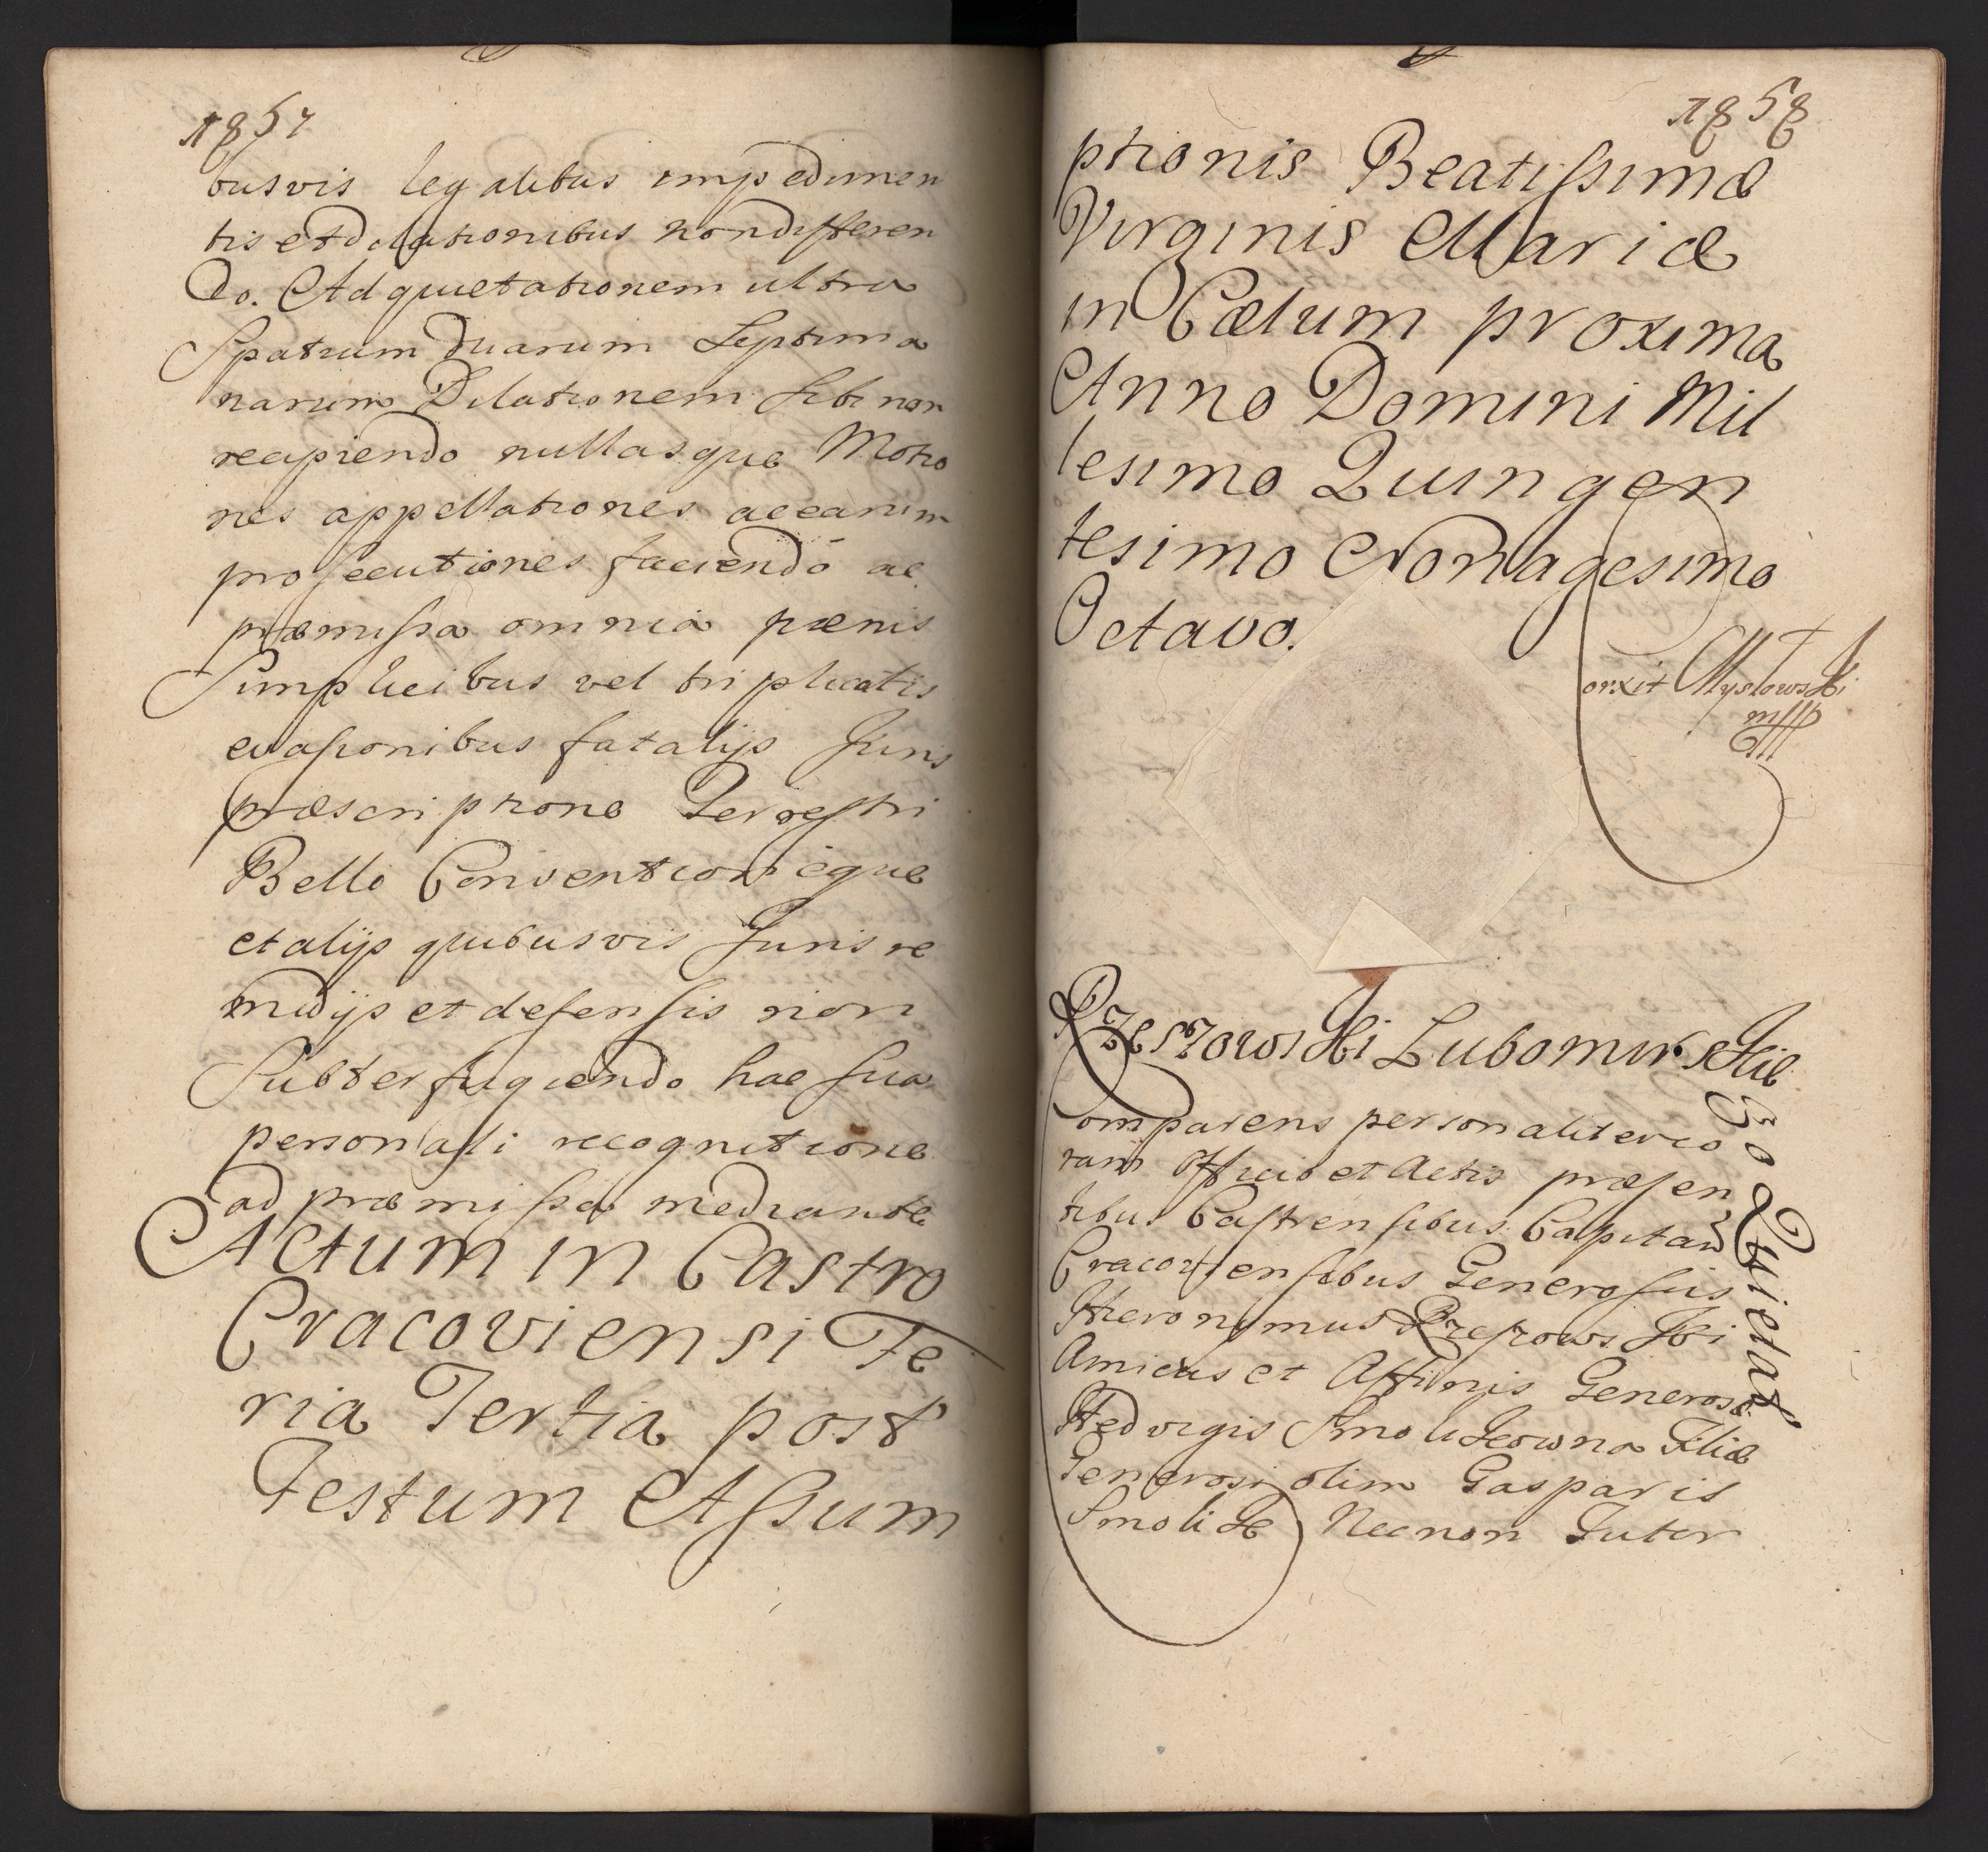 1857
busvis legalibus impedimen
tis et dilationibus non differen
do. Ad quietationem ultra
Spatium duarum Septima
narum Dilationem sibi non
recipiendo nullasque Motio
nes appellationes ac earum
prosecutiones faciendo ac
præmissa omnia pænis
Simplicibus vel triplicatis
evasionibus fatalijs Juris
præscriptione Terrestri
Bello Conventionéque
et alijs quibusvis Juris re
medijs et defensis non
Subterfugiendo hac sua
personali recognitione
ad præmissa mediante
Actum in Castro
Cracoviensi Fe
ria Tertia post
Festum Assum
1858
ptionis Beatissimæ
Virginis Mariæ
in Cælum proxima
Anno Domini Mil
lesimo Quingen
tesimo Nonagesimo
Octavo.
Mysłowski
mpp
Rzeszowski Lubomirskie
go Quietat
Comparens personaliter co
ram Officio et Actis præsen
tibus Castrensibus Capitan
Cracoviensibus Generosus
Hieronymus Rzeszowski
Amicus et Affinis Generosæ
Hedvigis Smolikowna Filiæ
Generosi olim Gasparis
Smolik Necnon Tutor